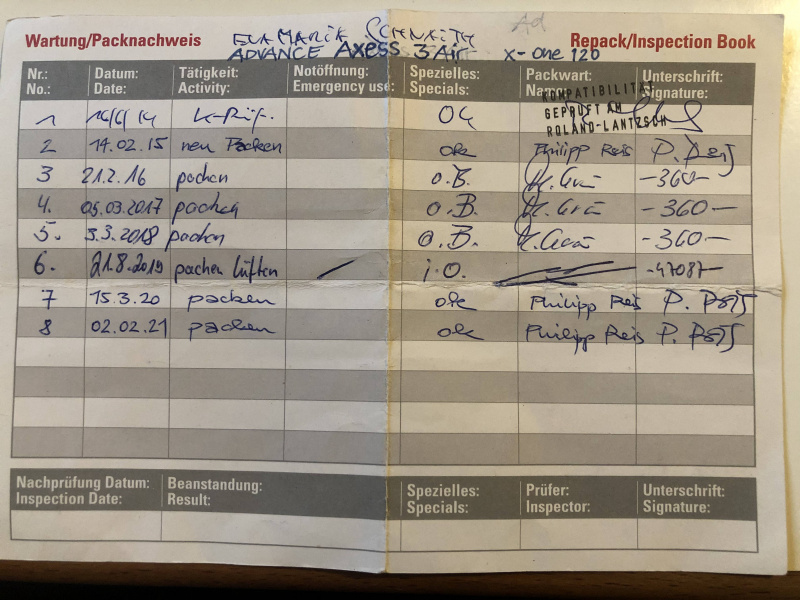 Wartung/Packnachweis EVA MARIA Ad Repack/Inspection Book
ADVANCE Axess 3 Air X-one 120
Nr.: Datum: Tätigkeit: Notöffnung: Spezielles: Packwart: Unterschrift:
No.: Date: Activity: Emergency use: Specials: Signature:
KOMPATIBILITÄT
GEPRÜFT AM
ROLAND-LANTZSCH
1 16/6/14 K-Prüf. OK
2 14.02.15 neu Packen ok Philipp Reis P. Reis
3 21.2.16 packen o.B. -360-
4. 05.03.2017 packen o.B. -360-
5. 3.3.2018 packen o.B. -360-
6. 21.8.2019 packen lüften i.O. -47087-
7 15.3.20 packen ok Philipp Reis P. Reis
8 02.02.21 packen ok Philipp Reis P. Reis
Nachprüfung Datum: Beanstandung: Spezielles: Prüfer: Unterschrift:
Inspection Date: Result: Specials: Inspector: Signature: